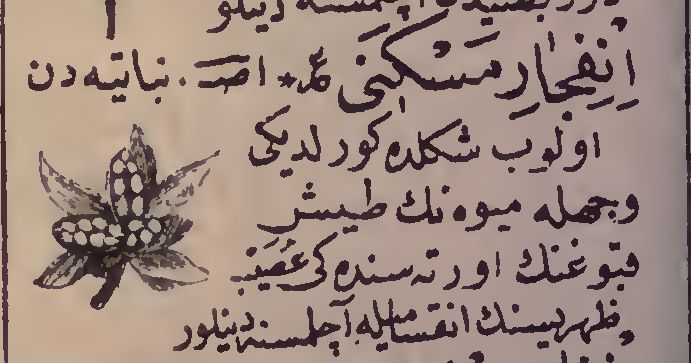 آچلمسنه دینلور
اِنفِجارِ مَسْکَنی ع* اصـ. نباتیه دن
اولوب شکلده کورلدیکی
وجهله میوه نك طیش
قبوغنك اورته سنده کی عَصَبِ
ظهریسنك انقسامیله آچلمسنه دینلور